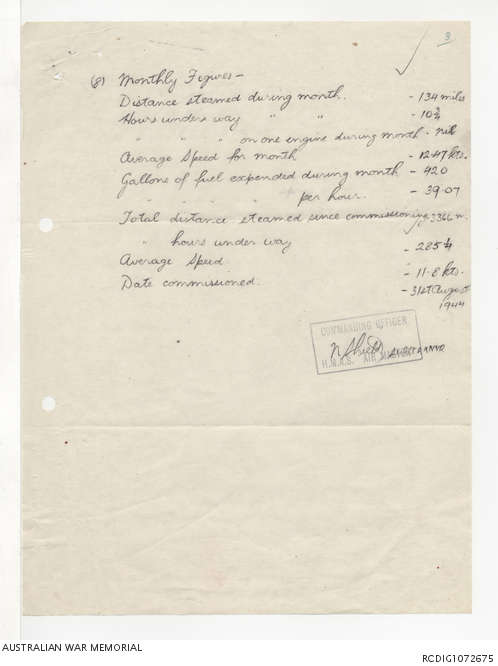 3
(8) Monthly Figures –
Distance steamed during month. - 134 miles
Hours under way " " - 10¾
" " " on one engine during month - nil
Average Speed for month - 12.47 kts.
Gallons of fuel expended during month - 420
" " " " per hour. - 39.07
Total distance steamed since commissioning 3366 m.
" hours under way - 285¼
Average Speed. - 11.8 kts.
Date commissioned. - 31st August
1944
COMMANDING OFFICER
H.M.A.S. AIR
AUSTRALIAN WAR MEMORIAL
RCDIG1072675